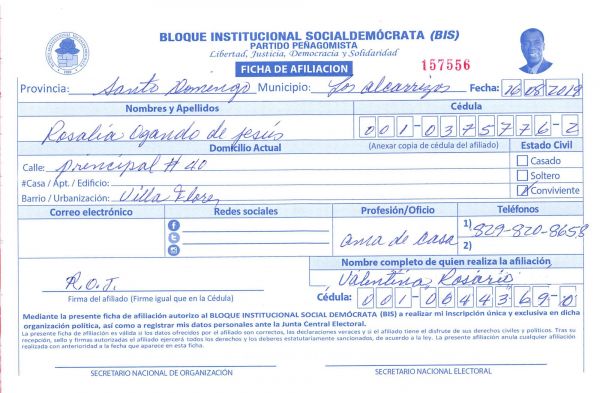 BLOQUE INSTITUCIONAL SOCIALDEMÓCRATA (BIS)
PARTIDO PEÑAGOMISTA
Libertad, Justicia, Democracia y Solidaridad
157556
FICHA DE AFILIACION
Provincia: Santo Domingo Municipio: Los alcarrizos Fecha: 16/08/2019
Nombres y Apellidos Cédula
Rosalia Ogando de Jesús 001-0375776-2
Domicilio Actual (Anexar copia de cédula del afiliado) Estado Civil
Calle: principal # 40 Casado
#Casa / Apt. / Edificio: Soltero
Barrio / Urbanización: Villa Flores Conviviente
Correo electrónico Redes sociales Profesión/Oficio Teléfonos
ama de casa 1) 829-820-8658
2)
Nombre completo de quien realiza la afiliación
R.O.J. Valentina Rosario
Firma del afiliado (Firme igual que en la Cédula) Cédula: 001-0644369-0
Mediante la presente ficha de afiliación autorizo al BLOQUE INSTITUCIONAL SOCIAL DEMÓCRATA (BIS) a realizar mi inscripción única y exclusiva en dicha
organización política, así como a registrar mis datos personales ante la Junta Central Electoral.
La presente ficha de afiliación es válida si los datos ofrecidos por el afiliado son correctos, las declaraciones veraces y si el afiliado tiene el disfrute de sus derechos civiles y políticos. Tras su
recepción, sello y firmas autorizadas el afiliado ejercerá todos los derechos y los deberes estatutariamente sancionados, de acuerdo a la ley. La presente afiliación anula cualquier afiliación
realizada con anterioridad a la fecha que aparece en esta ficha.
SECRETARIO NACIONAL DE ORGANIZACIÓN SECRETARIO NACIONAL ELECTORAL